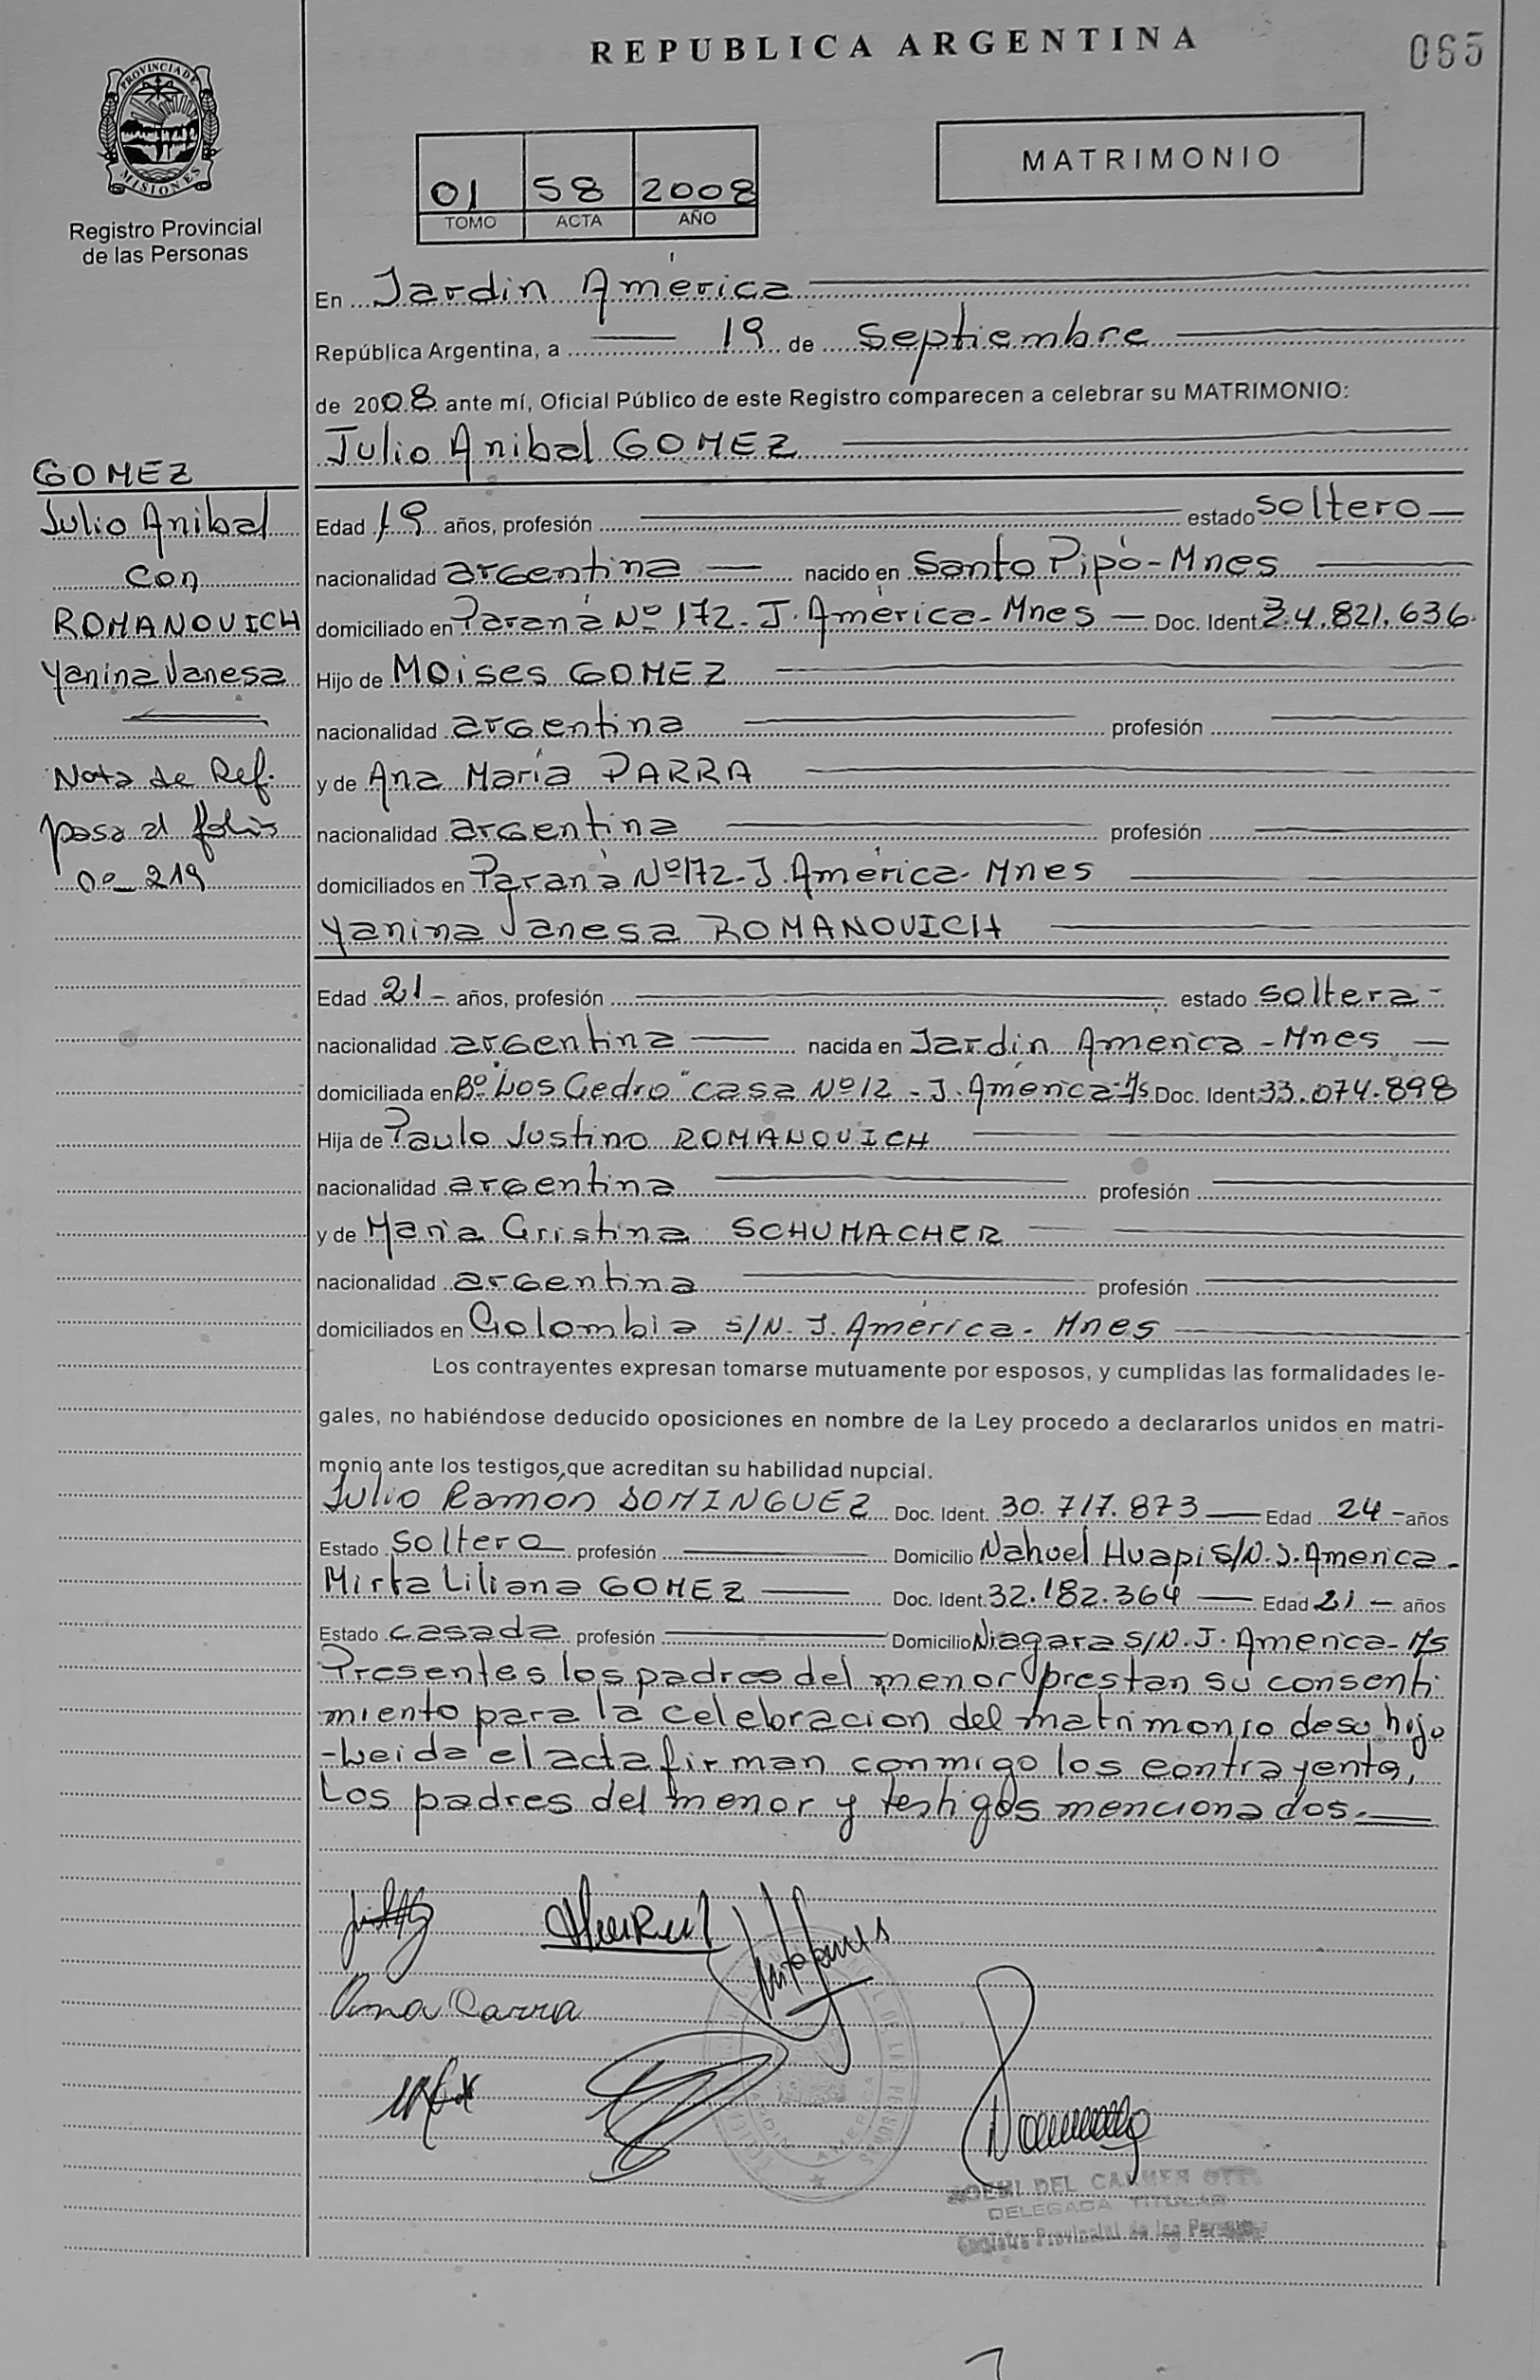 REPUBLICA ARGENTINA
065
PROVINCIA DE
MISIONES
Registro Provincial
de las Personas
MATRIMONIO
01 58 2008
TOMO ACTA AÑO
En Jardín América
República Argentina, a 19 de Septiembre
de 2008 ante mí, Oficial Público de este Registro comparecen a celebrar su MATRIMONIO:
Julio Anibal GOMEZ
GOMEZ
Julio Anibal
con
ROMANOVICH
Yanina Vanesa
Nota de Ref.
pasa al folio
nº 219
Edad 19 años, profesión estado soltero
nacionalidad argentina nacido en Santo Pipó-Mnes
domiciliado en Paraná Nº 172-J. América-Mnes Doc. Ident. 34.821.636
Hijo de Moises GOMEZ
nacionalidad argentina profesión
y de Ana María PARRA
nacionalidad argentina profesión
domiciliados en Paraná Nº172-J. América-Mnes
Yanina Vanesa ROMANOVICH
Edad 21- años, profesión estado soltera-
nacionalidad argentina nacida en Jardín America-Mnes
domiciliada en Bº "Los Cedro" casa Nº12-J. América-Ms Doc. Ident. 33.074.898
Hija de Paulo Justino ROMANOVICH
nacionalidad argentina profesión
y de María Cristina SCHUMACHER
nacionalidad argentina profesión
domiciliados en Colombia s/N. J. América-Mnes
Los contrayentes expresan tomarse mutuamente por esposos, y cumplidas las formalidades le-
gales, no habiéndose deducido oposiciones en nombre de la Ley procedo a declararlos unidos en matri-
monio ante los testigos que acreditan su habilidad nupcial.
Julio Ramón DOMINGUEZ Doc. Ident. 30.717.873 Edad 24- años
Estado soltero profesión Domicilio Nahuel Huapi S/N.J.America-
Mirta Liliana GOMEZ Doc. Ident. 32.182.364 Edad 21- años
Estado casada profesión Domicilio Niagara S/N.J.America-Ms
Presentes los padres del menor prestan su consenti
miento para la celebración del matrimonio de su hijo
-Leida el acta firman conmigo los contrayente,
Los padres del menor y testigos mencionados.
Ana Parra
NOEMI DEL CARMEN
DELEGADA TITULAR
Registro Provincial de las Personas